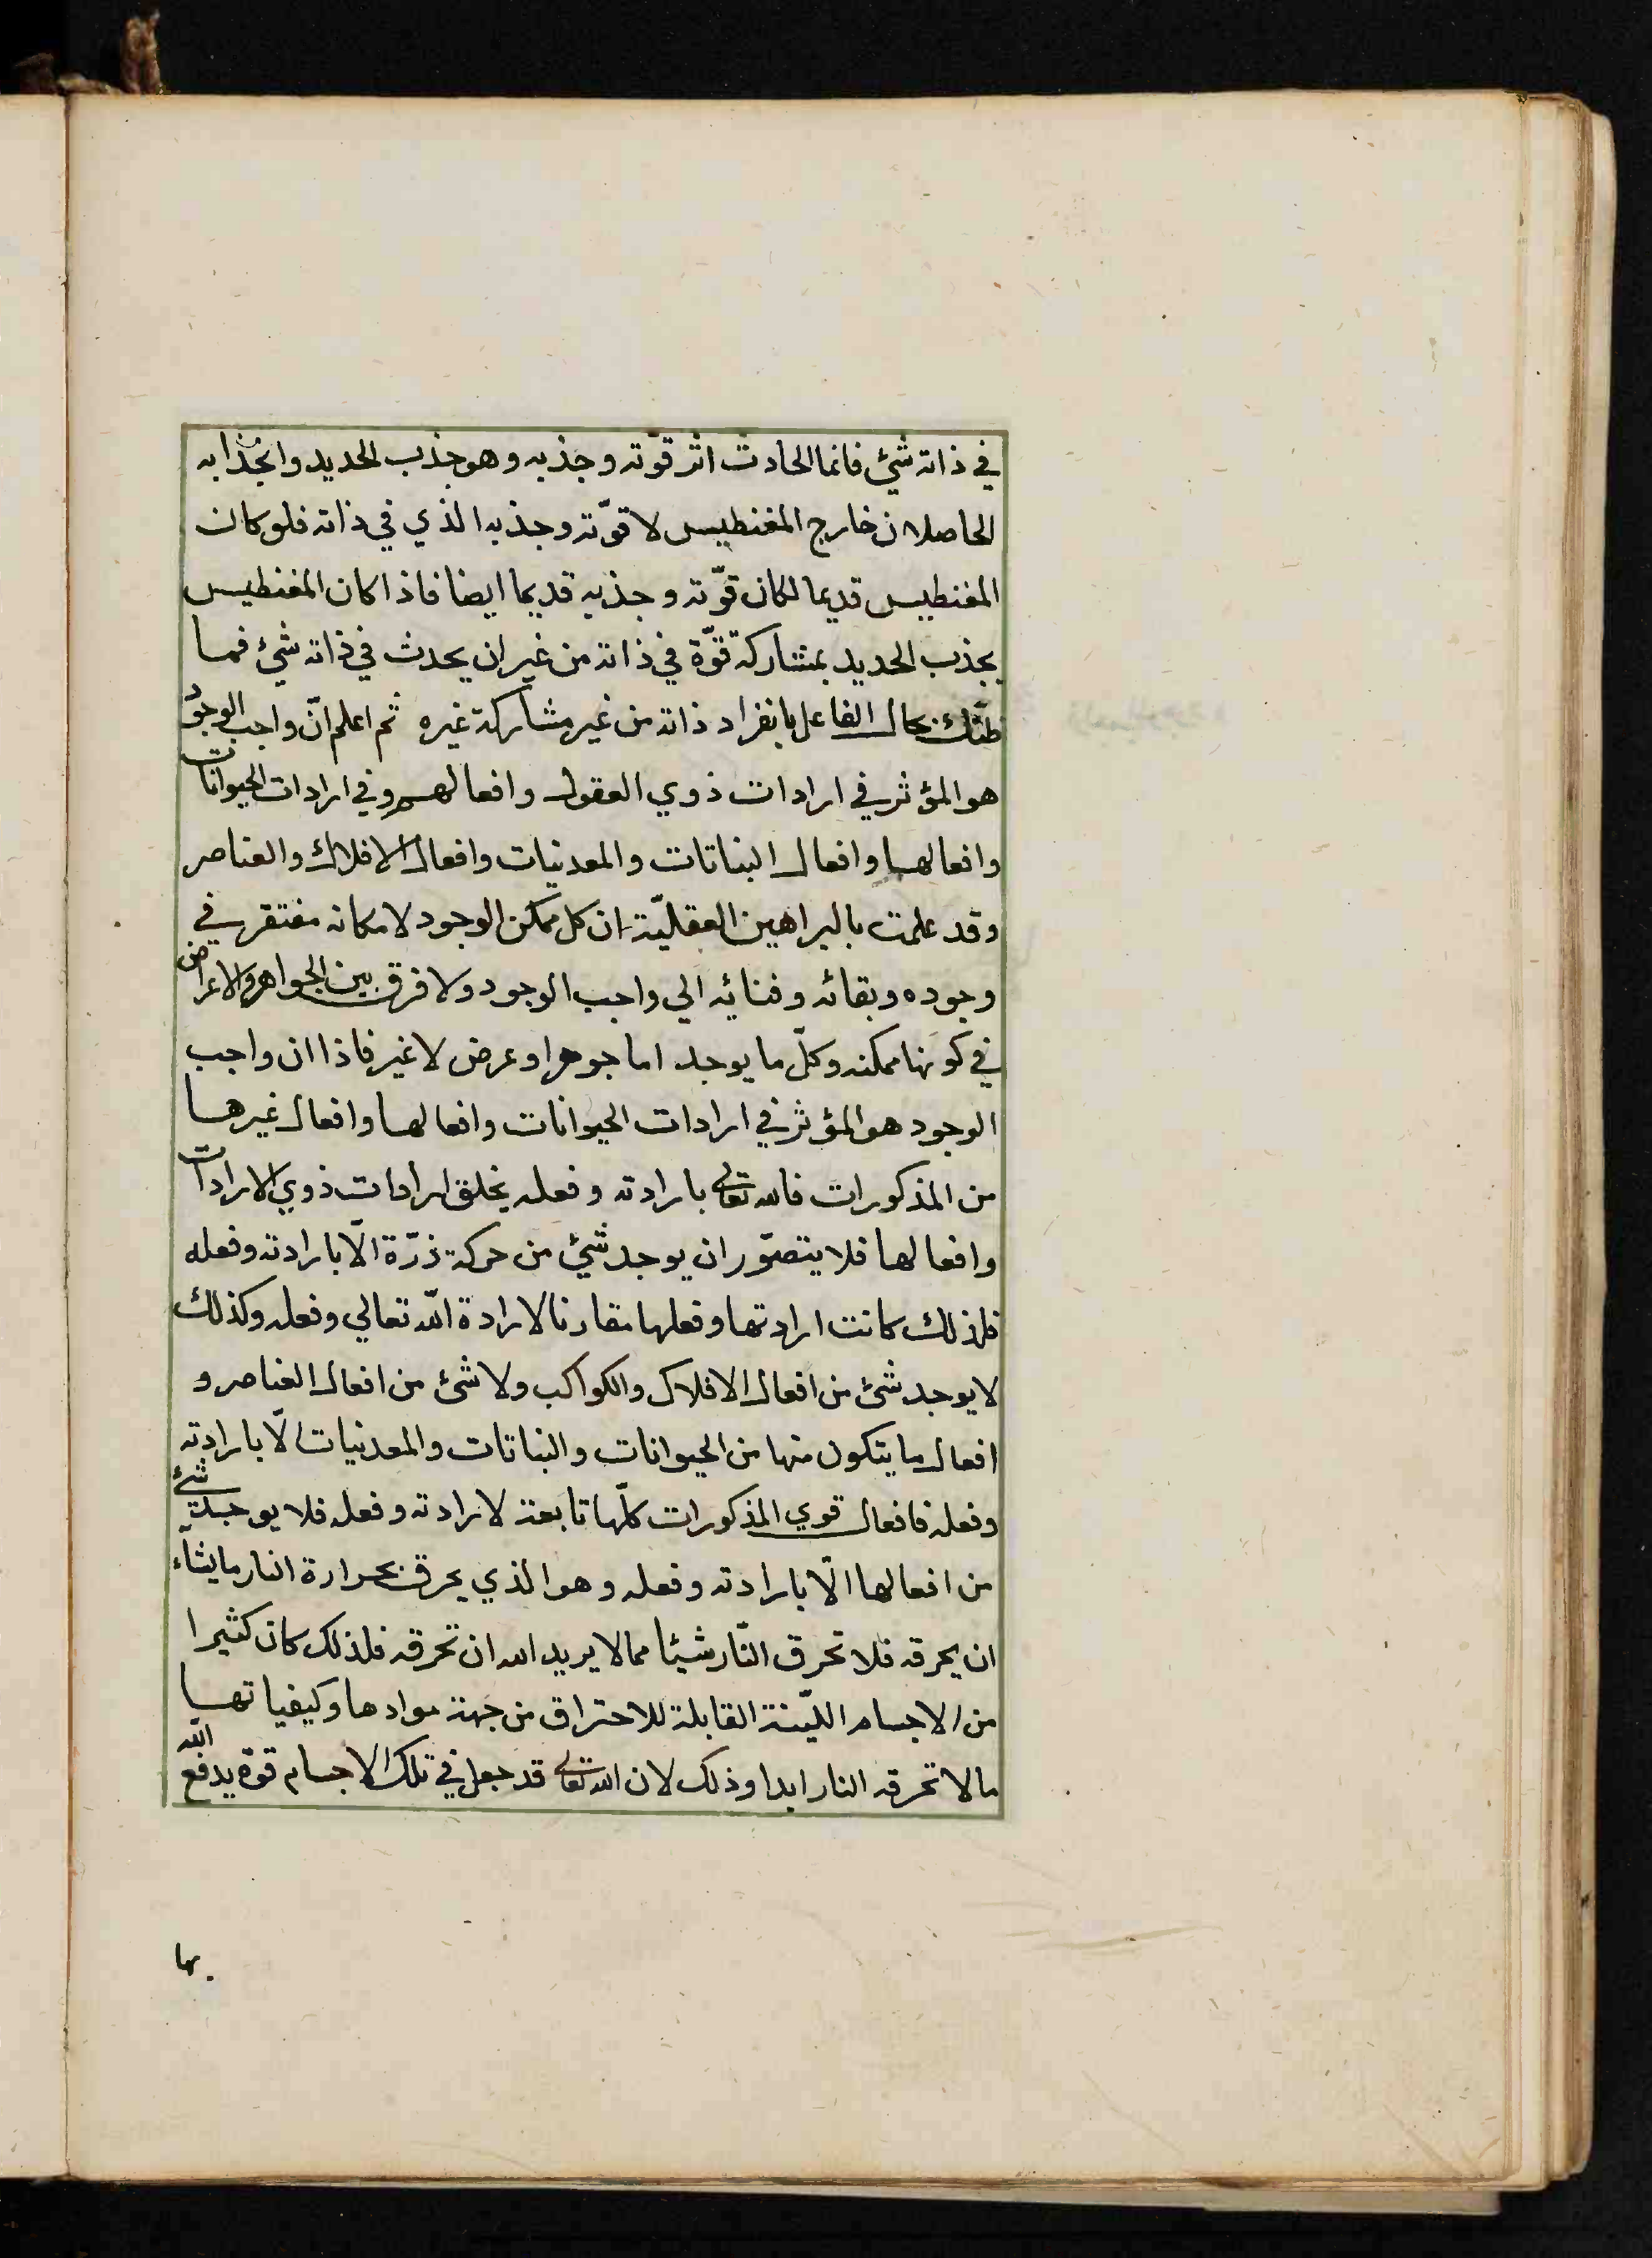 في ذاته شيئ فانما الحادث اثر قوّته وجذبه وهو جذب الحديد وانجذابه
الحاصلان خارج المغنطيس لا قوّته وجذبه الذي في ذاته فلو كان
المغنطيس قديما لكان قوّته وجذبه قديما ايضا فاذا كان المغنطيس
يجذب الحديد بمشاركة قوّة في ذاته من غير ان يحدث في ذاته شيئ فما
ظنّك بحال الفاعل بانفراد ذاته من غير مشاركة غيره ثم اعلم انّ واجب الوجود
هو المؤثر في ارادات ذوي العقول وافعالهم وفي ارادات الحيوانات
وافعالها وافعال النباتات والمعدنيات وافعال الافلاك والعناصر
وقد علمت بالبراهين العقليّة ان كل ممكن الوجود لامكانه مفتقر في
وجوده وبقائه وفنائه الي واجب الوجود ولا فرق بين الجواهر والاعراض
في كونها ممكنه وكلّ ما يوجد اما جوهر او عرض لا غير فاذا ان واجب
الوجود هو المؤثر في ارادات الحيوانات وافعالها وافعال غيرها
من المذكورات فالله تعالى بارادته وفعله يخلق ارادات ذوي الارادات
وافعالها فلا يتصوّر ان يوجد شيئ من حركة ذرّة الّا بارادته وفعله
فلذلك كانت ارادتها وفعلها مقارنا لارادة الله تعالي وفعله وكذلك
لا يوجد شئ من افعال الافلاك والكواكب ولا شئ من افعال العناصر و
افعال ما يتكون منها من الحيوانات والنباتات والمعدنيات الّا بارادته
وفعله فافعال قوي المذكورات كلّها تابعة لارادته وفعله فلا يوجد شئ
من افعالها الّا بارادته وفعله وهو الذي يحرق بحرارة النار ما يشاء
ان يحرقه فلا تحرق النّار شيئا مما لا يريد الله ان تحرقه فلذلك كان كثيرا
من الاجسام الليّنة القابلة للاحتراق من جهة موادها وكيفياتها
ما لا تحرقه النار ابدا وذلك لان الله تعالى قد جعل في تلك الاجسام قوّة يدفع الله
بها